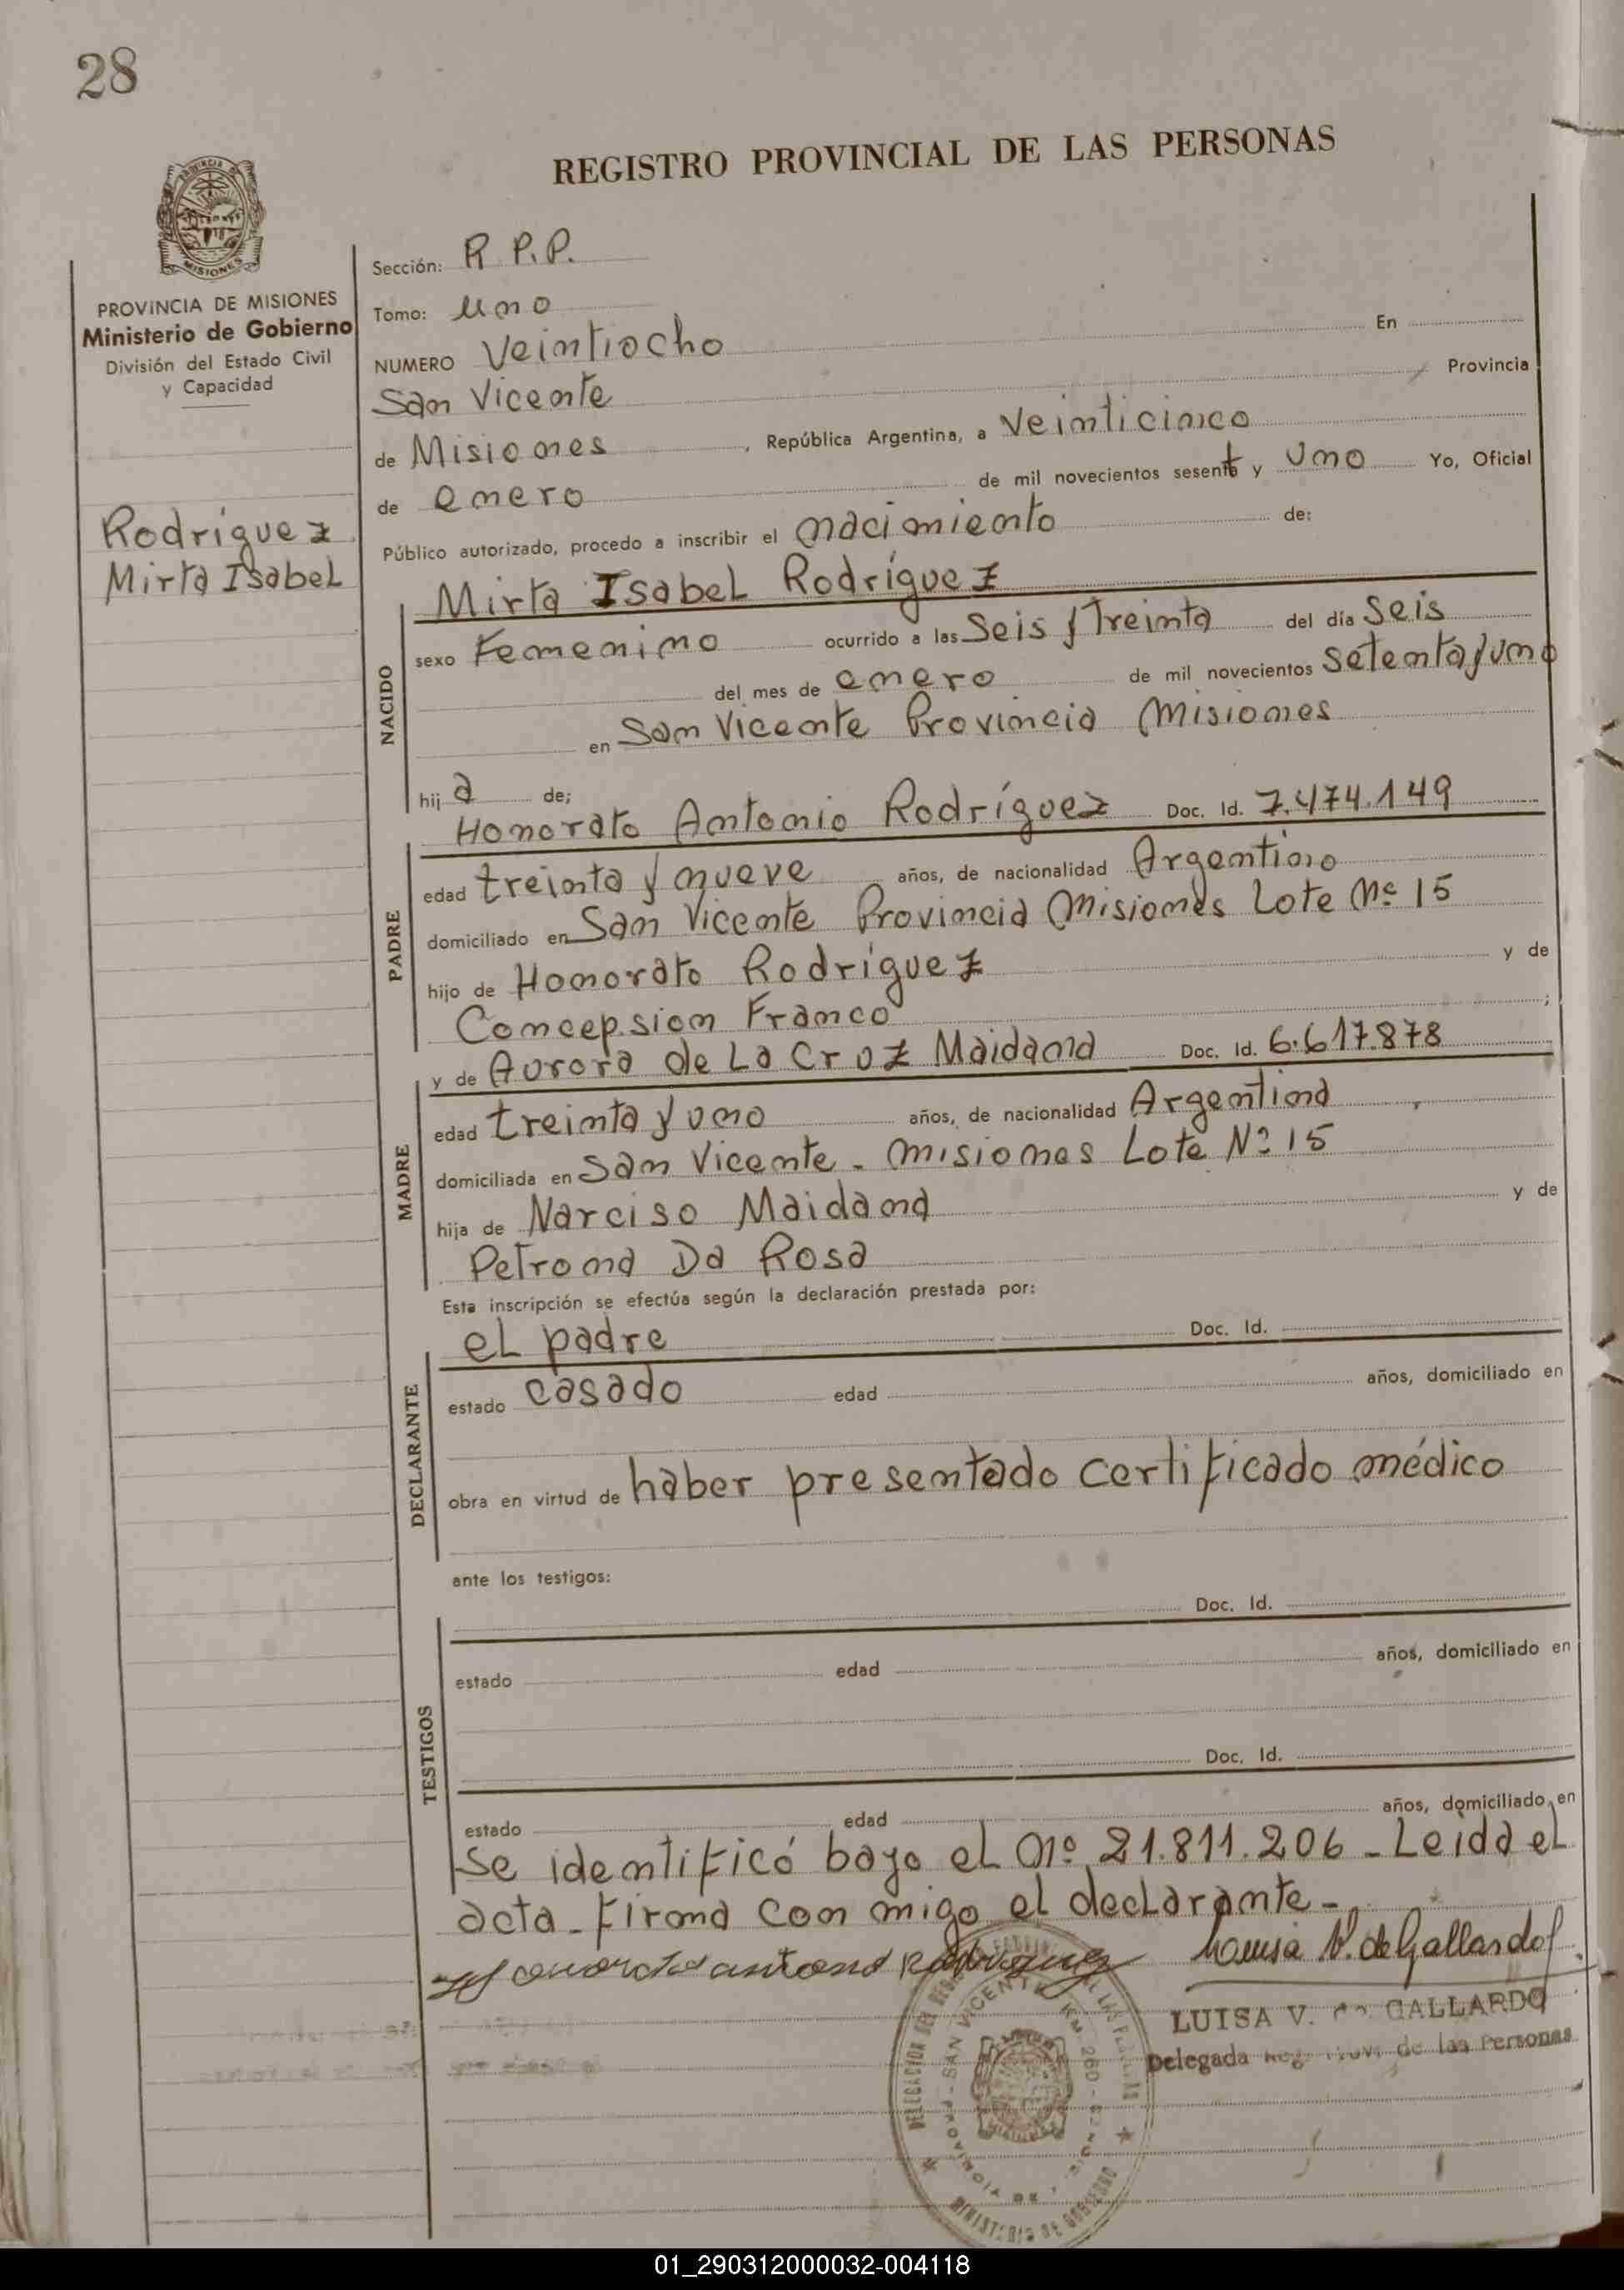 28
REGISTRO PROVINCIAL DE LAS PERSONAS
MISIONES
PROVINCIA DE MISIONES
Ministerio de Gobierno
División del Estado Civil
y Capacidad
Rodríguez
Mirta Isabel
Sección: R P.P.
Tomo: uno
NUMERO Veintiocho En
San Vicente Provincia
de Misiones, República Argentina, a Veinticinco
de enero de mil novecientos sesent y uno Yo, Oficial
Público autorizado, procedo a inscribir el nacimiento de:
NACIDO
Mirta Isabel Rodríguez
sexo Femenino ocurrido a las Seis y Treinta del día Seis
del mes de enero de mil novecientos setenta y uno
en San Vicente Provincia Misiones
hija de;
PADRE
Honorato Antonio Rodríguez Doc. Id. 7.474.149
edad treinta y nueve años, de nacionalidad Argentino
domiciliado en San Vicente Provincia Misiones Lote Nº 15
hijo de Honorato Rodríguez y de
Concepsion Franco ;
MADRE
y de Aurora de La Cruz Maidana Doc. Id. 6.617.878
edad treinta y uno años, de nacionalidad Argentina
domiciliada en San Vicente - Misiones Lote Nº 15
hija de Narciso Maidana y de
Petrona Da Rosa
Esta inscripción se efectúa según la declaración prestada por:
DECLARANTE
el padre Doc. Id.
estado casado edad años, domiciliado en
obra en virtud de haber presentado certificado médico
ante los testigos:
TESTIGOS
Doc. Id.
estado edad años, domiciliado en
Doc. Id.
estado edad años, domiciliado en
se identificó bajo el nº 21.811.206 - Leida el
acta - firma con migo el declarante -
antonio Rodriguez Louisa V. de Gallardo
LUISA V. de GALLARDO
Delegada Reg. Prov. de las Personas
DELEGACION DEL
SAN VICENTE KM 260
PROVINCIA DE
MINISTERIO DE GOBIERNO
01_290312000032-004118